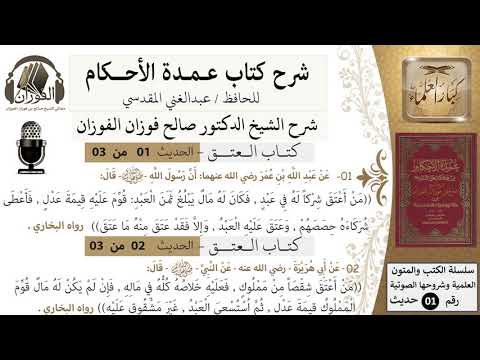 شرح كتاب عـمـدة الأحـكـام
للحافظ / عبدالغني المقدسي
شرح الشيخ الدكتور صالح فوزان الفوزان
كـتـاب الـعـتـق - الحديث 01 من 03
01- عَنْ عَبْدِ اللَّهِ بْنِ عُمَرَ رضي الله عنهما: أَنَّ رَسُولَ اللَّهِ - ﷺ - قَالَ:
((مَنْ أَعْتَقَ شِرْكاً لَهُ فِي عَبْدٍ , فَكَانَ لَهُ مَالٌ يَبْلُغُ ثَمَنَ الْعَبْدِ: قُوِّمَ عَلَيْهِ قِيمَةَ عَدْلٍ , فَأَعْطَى
شُرَكَاءَهُ حِصَصَهُمْ , وَعَتَقَ عَلَيْهِ الْعَبْدُ , وَإِلاَّ فَقَدْ عَتَقَ مِنْهُ مَا عَتَقَ)) رواه البخاري .
كـتـاب الـعـتـق - الحديث 02 من 03
02- عَنْ أَبِي هُرَيْرَةَ - رضي الله عنه - عَنْ النَّبِيِّ - ﷺ - قَالَ:
((مَنْ أَعْتَقَ شِقْصاً مِنْ مَمْلُوكٍ , فَعَلَيْهِ خَلاصُهُ كُلُّهُ فِي مَالِهِ , فَإِنْ لَمْ يَكُنْ لَهُ مَالٌ قُوِّمَ
الْمَمْلُوكُ قِيمَةَ عَدْلٍ , ثُمَّ اُسْتُسْعِيَ الْعَبْدُ , غَيْرَ مَشْقُوقٍ عَلَيْهِ)) رواه البخاري .
الفوزان
كبار العلماء
عمدة الأحكام
سلسلة الكتب والمتون
العلمية وشروحها الصوتية
رقم 01 حديث